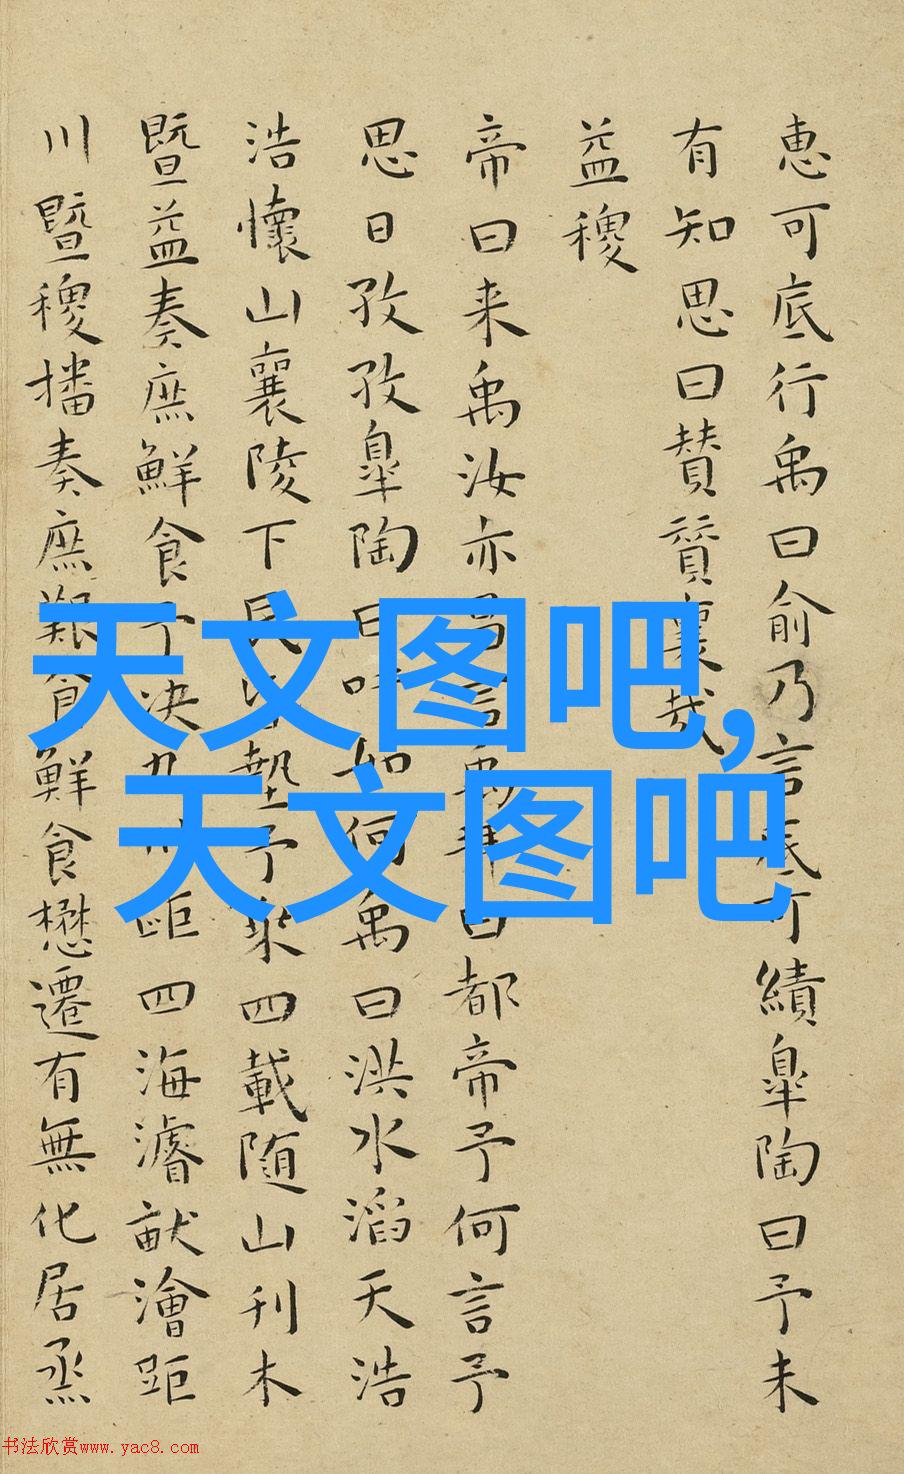 惠可底行禹曰俞乃言底可績皋陶曰予未
有知思曰賛賛襄哉
益稷
帝曰来禹汝亦昌言禹拜曰都帝予何言予
思日孜孜皋陶曰吁如何禹曰洪水滔天浩
浩懷山襄陵下民昏墊予乘四載随山刊木
暨益奏庶鮮食予决九川距四海濬畎澮距
川暨稷播奏庶艱食鮮食懋遷有無化居烝
天文图吧,
天文图吧
书法欣赏www.yac8.com